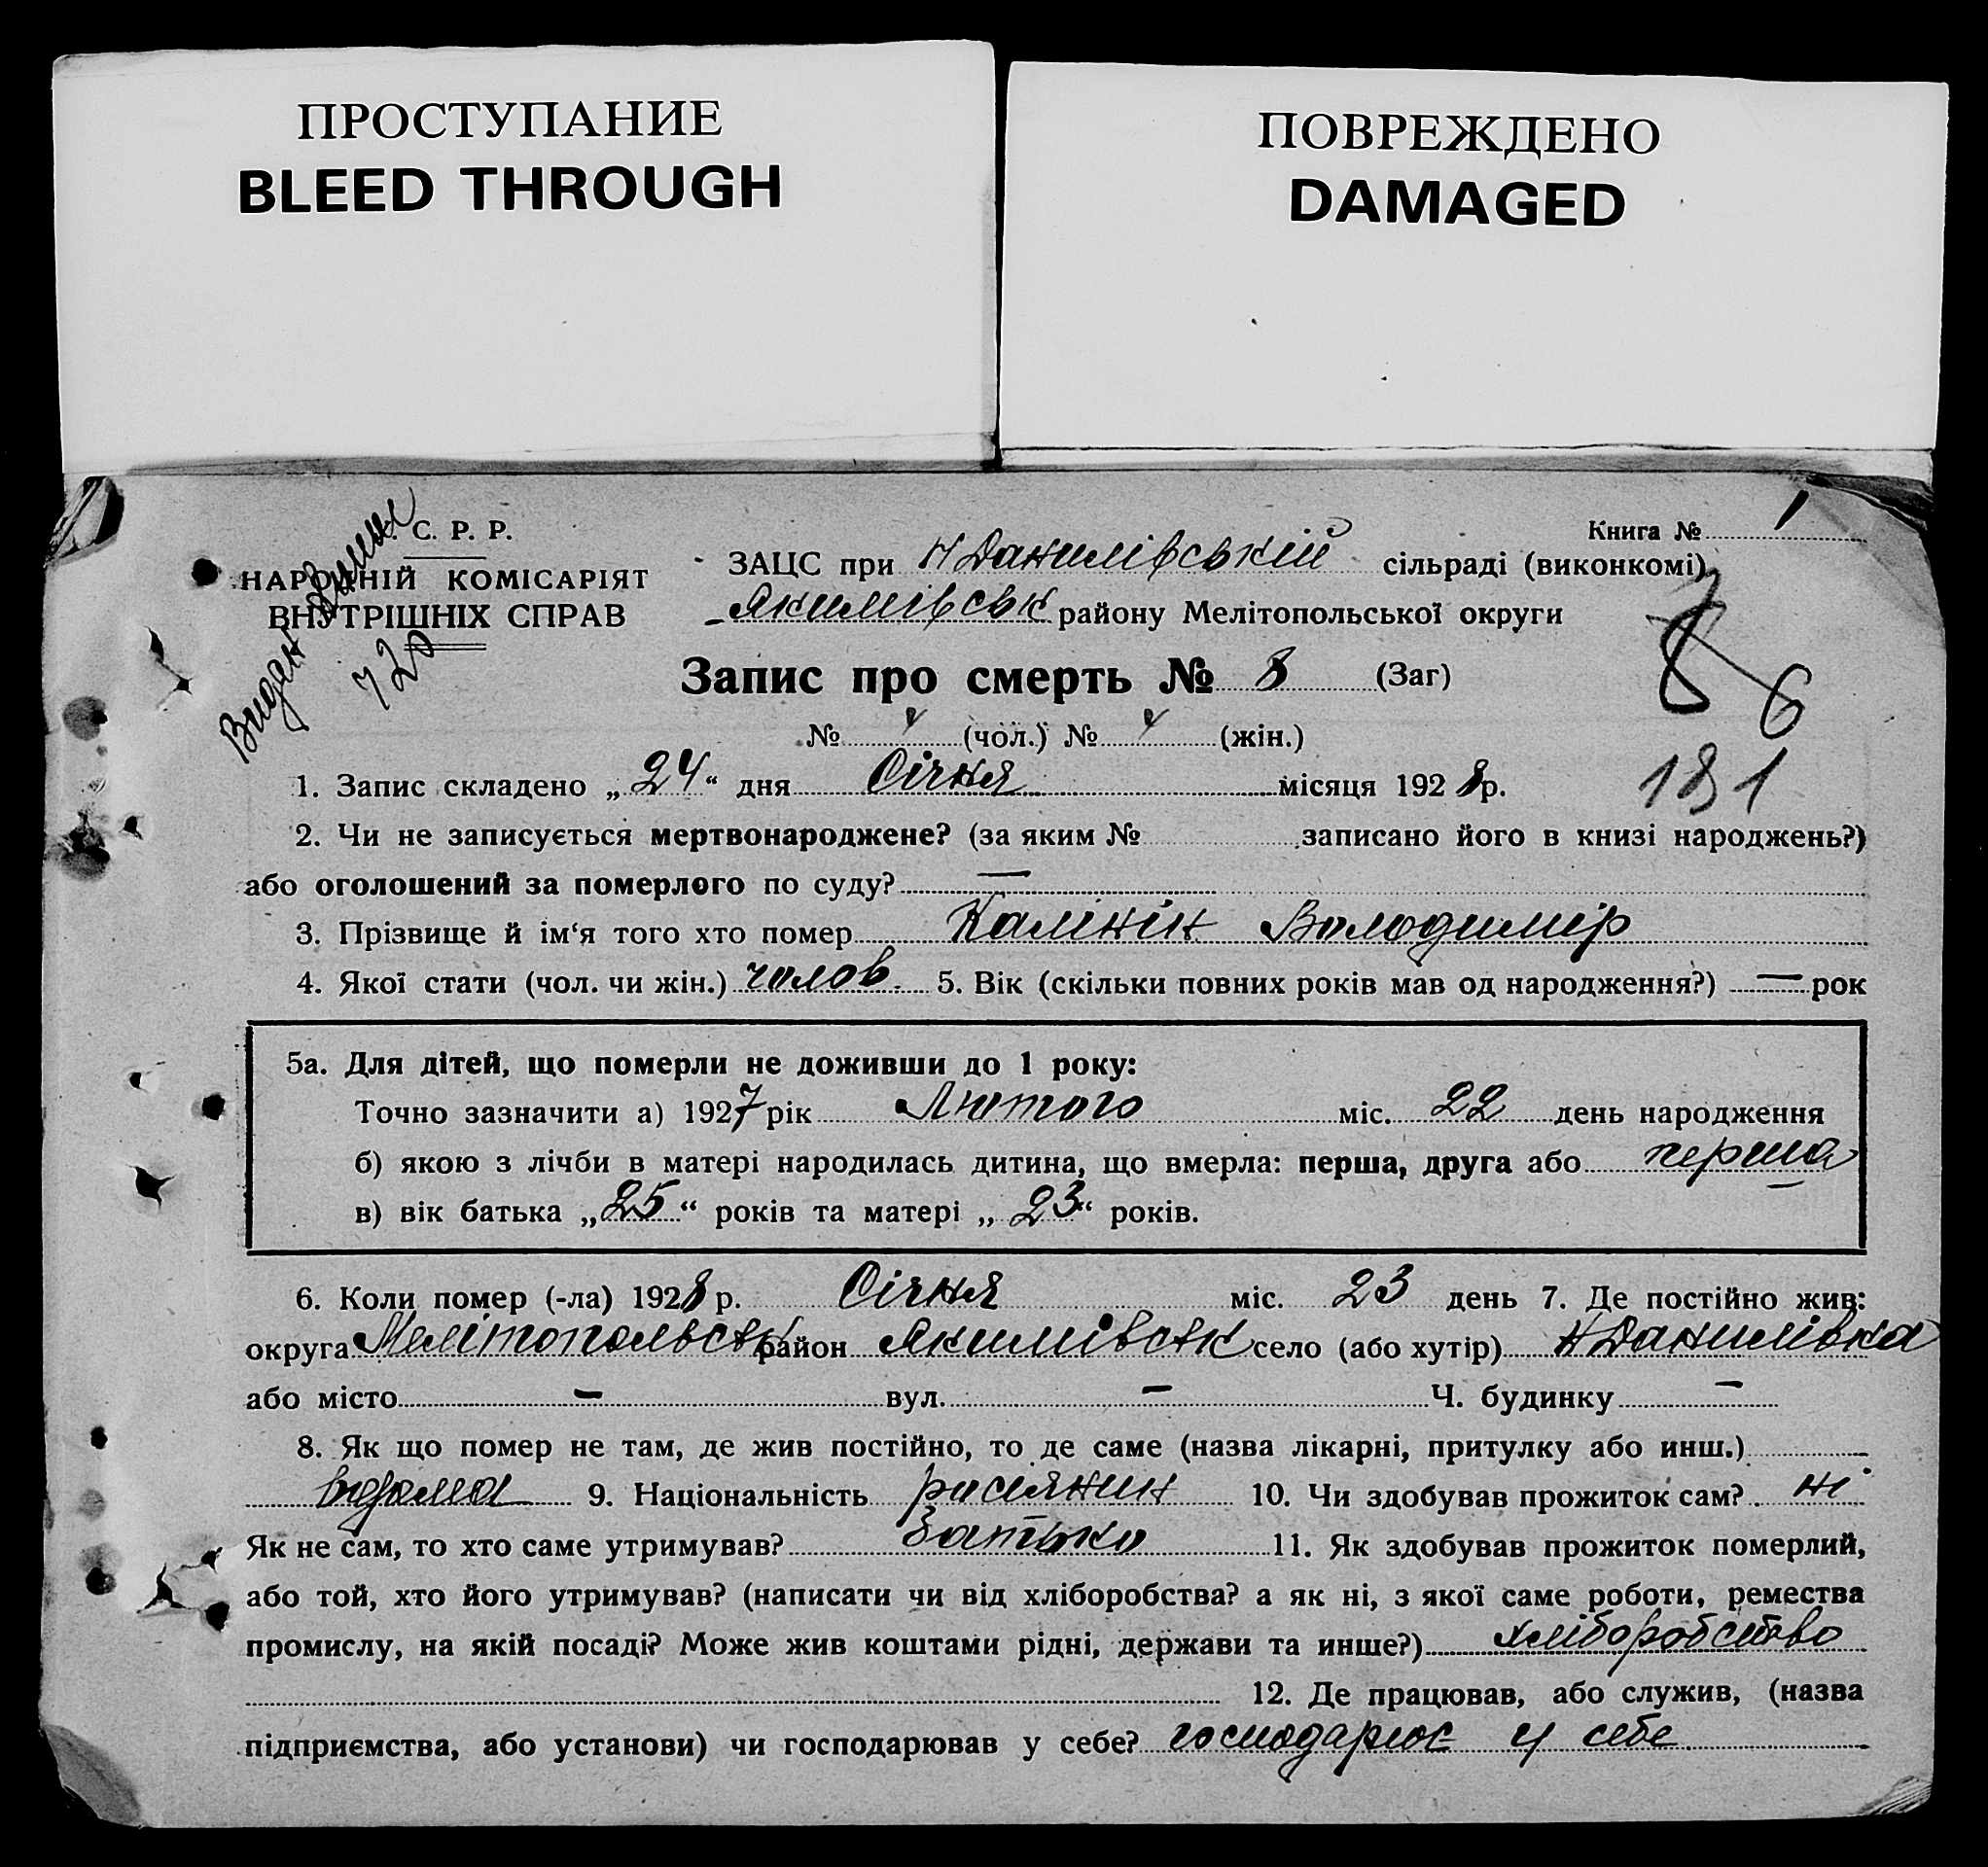 ПРОСТУПАНИЕ
BLEED THROUGH
ПОВРЕЖДЕНО
DAMAGED
С. Р. Р.
НАРОДНІЙ КОМІСАРІЯТ
ВНУТРІШНІХ СПРАВ
Видан
720
Книга № 1
ЗАЦС при НДанилівській сільраді (виконкомі)
Якимівськ району Мелітопольської округи
Запис про смерть № 8 (Заг)
6
№ 4 (чол.) № 4 (жін.)
181
1. Запис складено „24“ дня Січня місяця 1928р.
2. Чи не записується мертвонароджене? (за яким № записано його в книзі народжень?)
або оголошений за померлого по суду? —
3. Прізвище й ім‘я того хто помер Калінін Володимір
4. Якої стати (чол. чи жін.) чолов. 5. Вік (скільки повних років мав од народження?) — рок
5а. Для дітей, що померли не доживши до 1 року:
Точно зазначити а) 1927 рік Лютого міс. 22 день народження
б) якою з лічби в матері народилась дитина, що вмерла: перша, друга або перша
в) вік батька „25“ років та матері „23“ років.
6. Коли помер (-ла) 1928 р. Січня міс. 23 день 7. Де постійно жив:
округа Мелітопольськ район Якимівськ село (або хутір) НДанилівка
або місто — вул. — Ч. будинку —
8. Як що помер не там, де жив постійно, то де саме (назва лікарні, притулку або инш.)
вдома 9. Національність росіянин 10. Чи здобував прожиток сам? ні
Як не сам, то хто саме утримував? батько 11. Як здобував прожиток померлий,
або той, хто його утримував? (написати чи від хліборобства? а як ні, з якої саме роботи, ремества
промислу, на якій посаді? Може жив коштами рідні, держави та инше?) хліборобство
12. Де працював, або служив, (назва
підприємства, або установи) чи господарював у себе? господарює у себе